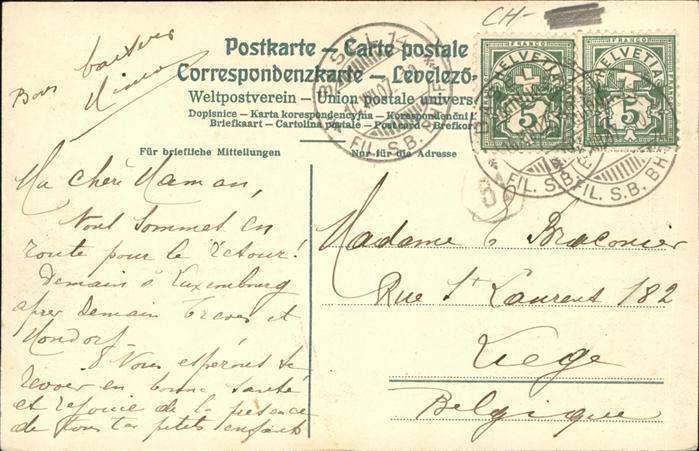 CH-
Bons baisers
Postkarte – Carte postale
Correspondenzkarte – Levelező-
Weltpostverein – Union postale univers
Dopisnice – Karta korespondencyjna – Korespondenční l
Briefkaart – Cartolina postale – Postcard – Brefkor
Für briefliche Mitteilungen
Nur für die Adresse
FRANCO
HELVETIA
5
FRANCO
HELVETIA
5
BASEL
FIL. S.B. BHF
FIL. S.B.
FIL. S.B. BH
8
Ma chère Maman,
Nous sommes en
route pour le retour!
Demain à Luxembourg
apres demain Treves et
Mondorf
Nous esperons te
revoir en bonne santé
et rejouie de la presence
de tous tes petits enfants
Madame Braconier
Rue St Laurent 182
Liege
Belgique